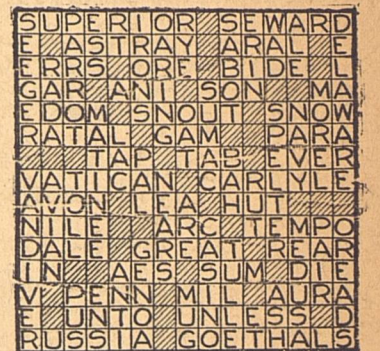 SUPERIOR SEWARD
E ASTRAY ARAL E
ERRS ORE BIDE L
GAR ANI SON MA
EDOM SNOUT SNOW
RATAL GAM PARA
TAP TAB EVER
VATICAN CARLYLE
AVON LEA HUT
NILE ARC TEMPO
DALE GREAT REAR
IN AES SUM DIE
V PENN MIL AURA
E UNTO UNLESS D
RUSSIA GOETHALS